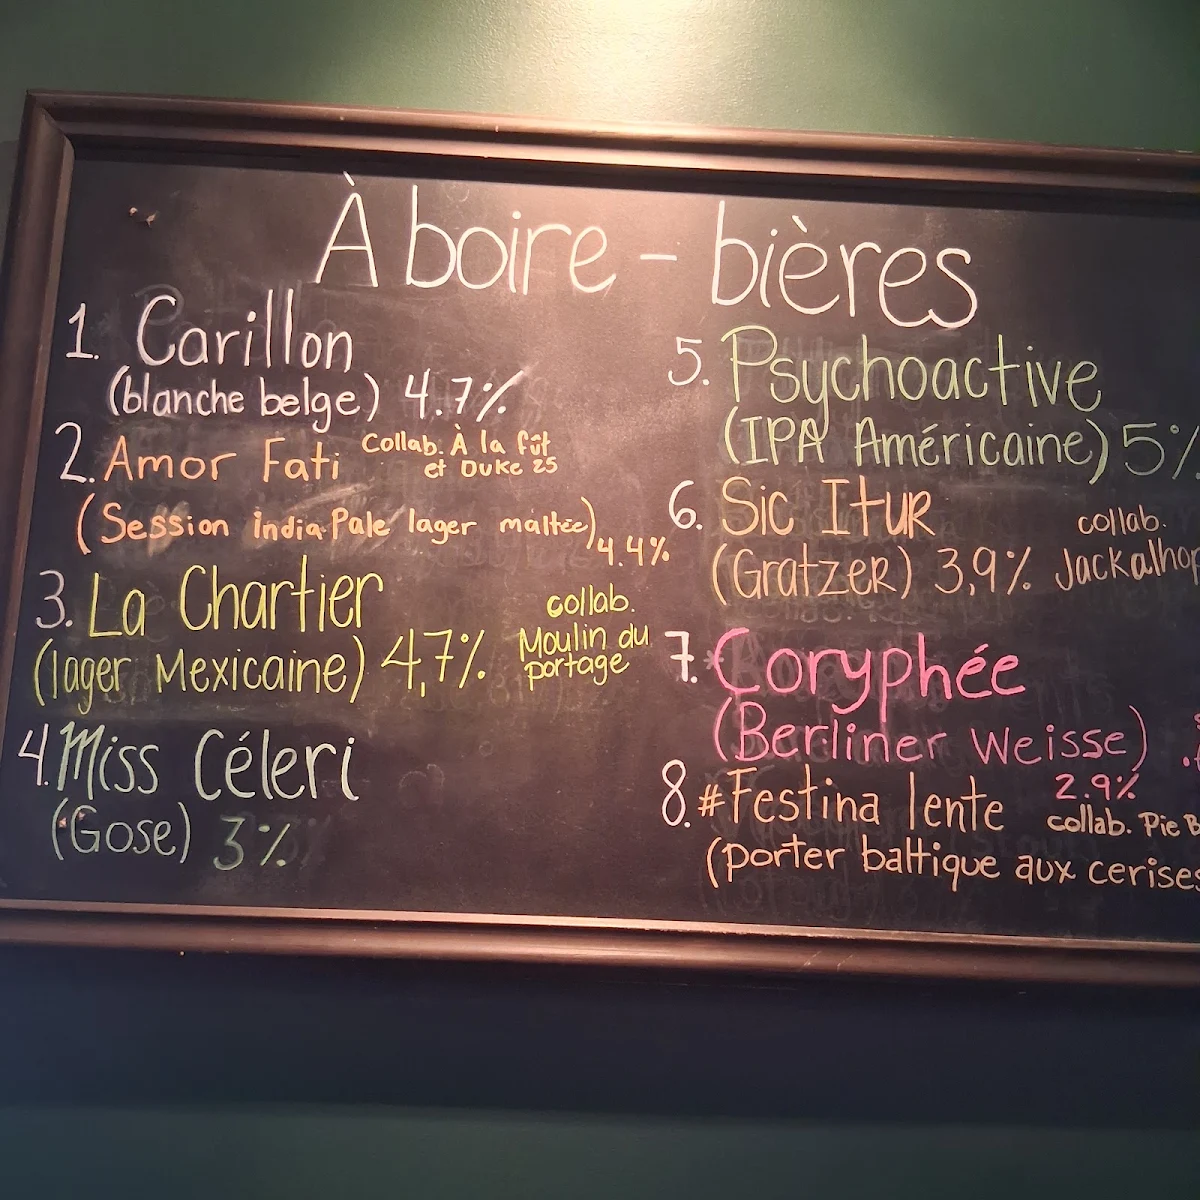 À boire - bières
1. Carillon
(blanche belge) 4.7%
2. Amor Fati Collab. À la fût
et Duke 25
(Session india Pale lager maltée) 4.4%
3. La Chartier
(lager Mexicaine) 4,7% collab.
Moulin du
portage
4. Miss Céleri
(Gose) 3%
5. Psychoactive
(IPA Américaine) 5%
6. Sic Itur
(Gratzer) 3,9% collab.
7.* Coryphée
(Berliner Weisse)
2.9%
8. #Festina lente collab. Pie
(porter baltique aux cerises